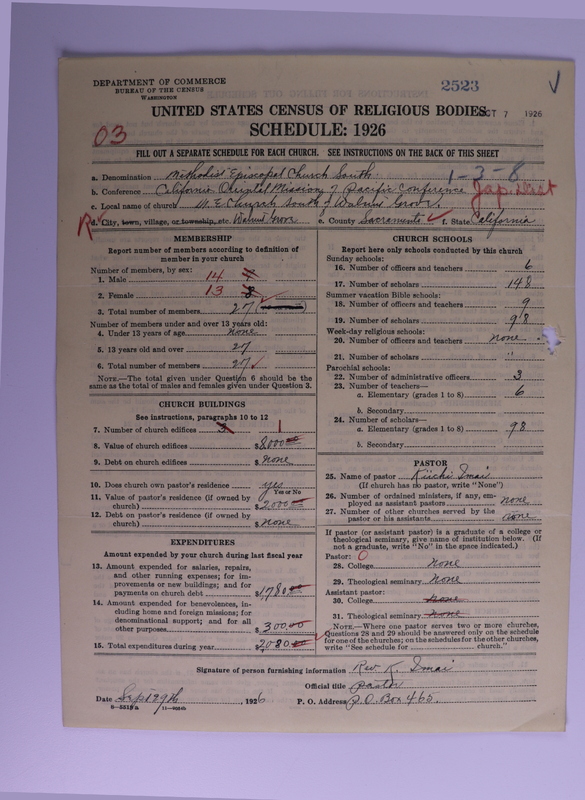 DEPARTMENT OF COMMERCE
BUREAU OF THE CENSUS
WASHINGTON
2523
UNITED STATES CENSUS OF RELIGIOUS BODIES
OCT 7 1926
03
SCHEDULE: 1926
FILL OUT A SEPARATE SCHEDULE FOR EACH CHURCH. SEE INSTRUCTIONS ON THE BACK OF THIS SHEET
a. Denomination Methodist Episcopal Church South. 1-3-8
b. Conference California Oriental Mission of Pacific Conference
Jap. Dist
c. Local name of church M. E. Church South of Walnut Grove.
d. City, town, village, or township, etc. Walnut Grove e. County Sacramento f. State California
MEMBERSHIP
Report number of members according to definition of
member in your church
Number of members, by sex:
1. Male 14
2. Female 13 8
3. Total number of members 27
Number of members under and over 13 years old:
4. Under 13 years of age none
5. 13 years old and over 27
6. Total number of members 27
NOTE.—The total given under Question 6 should be the
same as the total of males and females given under Question 3.
CHURCH BUILDINGS
See instructions, paragraphs 10 to 12
7. Number of church edifices 3 1
8. Value of church edifices $8,000.00
9. Debt on church edifices $ none
10. Does church own pastor's residence yes
Yes or No
11. Value of pastor's residence (if owned by
church) $2,000.00
12. Debt on pastor's residence (if owned by
church) $ none
EXPENDITURES
Amount expended by your church during last fiscal year
13. Amount expended for salaries, repairs,
and other running expenses; for im-
provements or new buildings; and for
payments on church debt $1,780.00
14. Amount expended for benevolences, in-
cluding home and foreign missions; for
denominational support; and for all
other purposes $300.00
15. Total expenditures during year $2080.00
CHURCH SCHOOLS
Report here only schools conducted by this church
Sunday schools:
16. Number of officers and teachers 6
17. Number of scholars 148
Summer vacation Bible schools:
18. Number of officers and teachers 9
19. Number of scholars 98
Week-day religious schools:
20. Number of officers and teachers none
21. Number of scholars "
Parochial schools:
22. Number of administrative officers 3
23. Number of teachers—
a. Elementary (grades 1 to 8) 6
b. Secondary
24. Number of scholars—
a. Elementary (grades 1 to 8) 98
b. Secondary
PASTOR
25. Name of pastor Kiichi Imai
(If church has no pastor, write "None")
26. Number of ordained ministers, if any, em-
ployed as assistant pastors none
27. Number of other churches served by the
pastor or his assistants none
If pastor (or assistant pastor) is a graduate of a college or
theological seminary, give name of institution below. (If
not a graduate, write "No" in the space indicated.)
Pastor: 0
28. College none
29. Theological seminary none
Assistant pastor:
30. College none
31. Theological seminary none
NOTE.—Where one pastor serves two or more churches,
Questions 28 and 29 should be answered only on the schedule
for one of the churches; on the schedules for the other churches,
write "See schedule for church."
Signature of person furnishing information Rev K. Imai
Official title pastor
Date Sept 29th, 1926 P. O. Address P.O. Box 465.